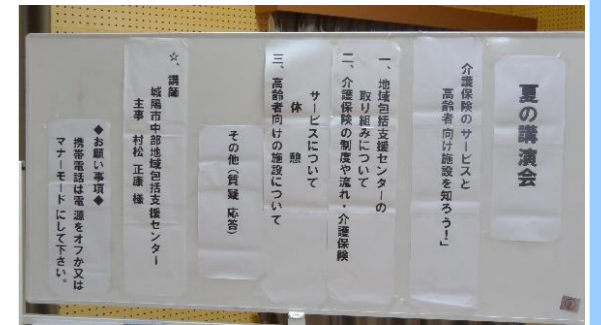 夏の講演会
介護保険のサービスと
高齢者向け施設を知ろう！」
一、地域包括支援センターの
取り組みについて
二、介護保険の制度や流れ・介護保険
サービスについて
休　憩
三、高齢者向けの施設について
その他（質疑応答）
☆、講師
城陽市中部地域包括支援センター
主事　村松 正康 様
◆お願い事項◆
携帯電話は電源をオフか又は
マナーモードにして下さい。